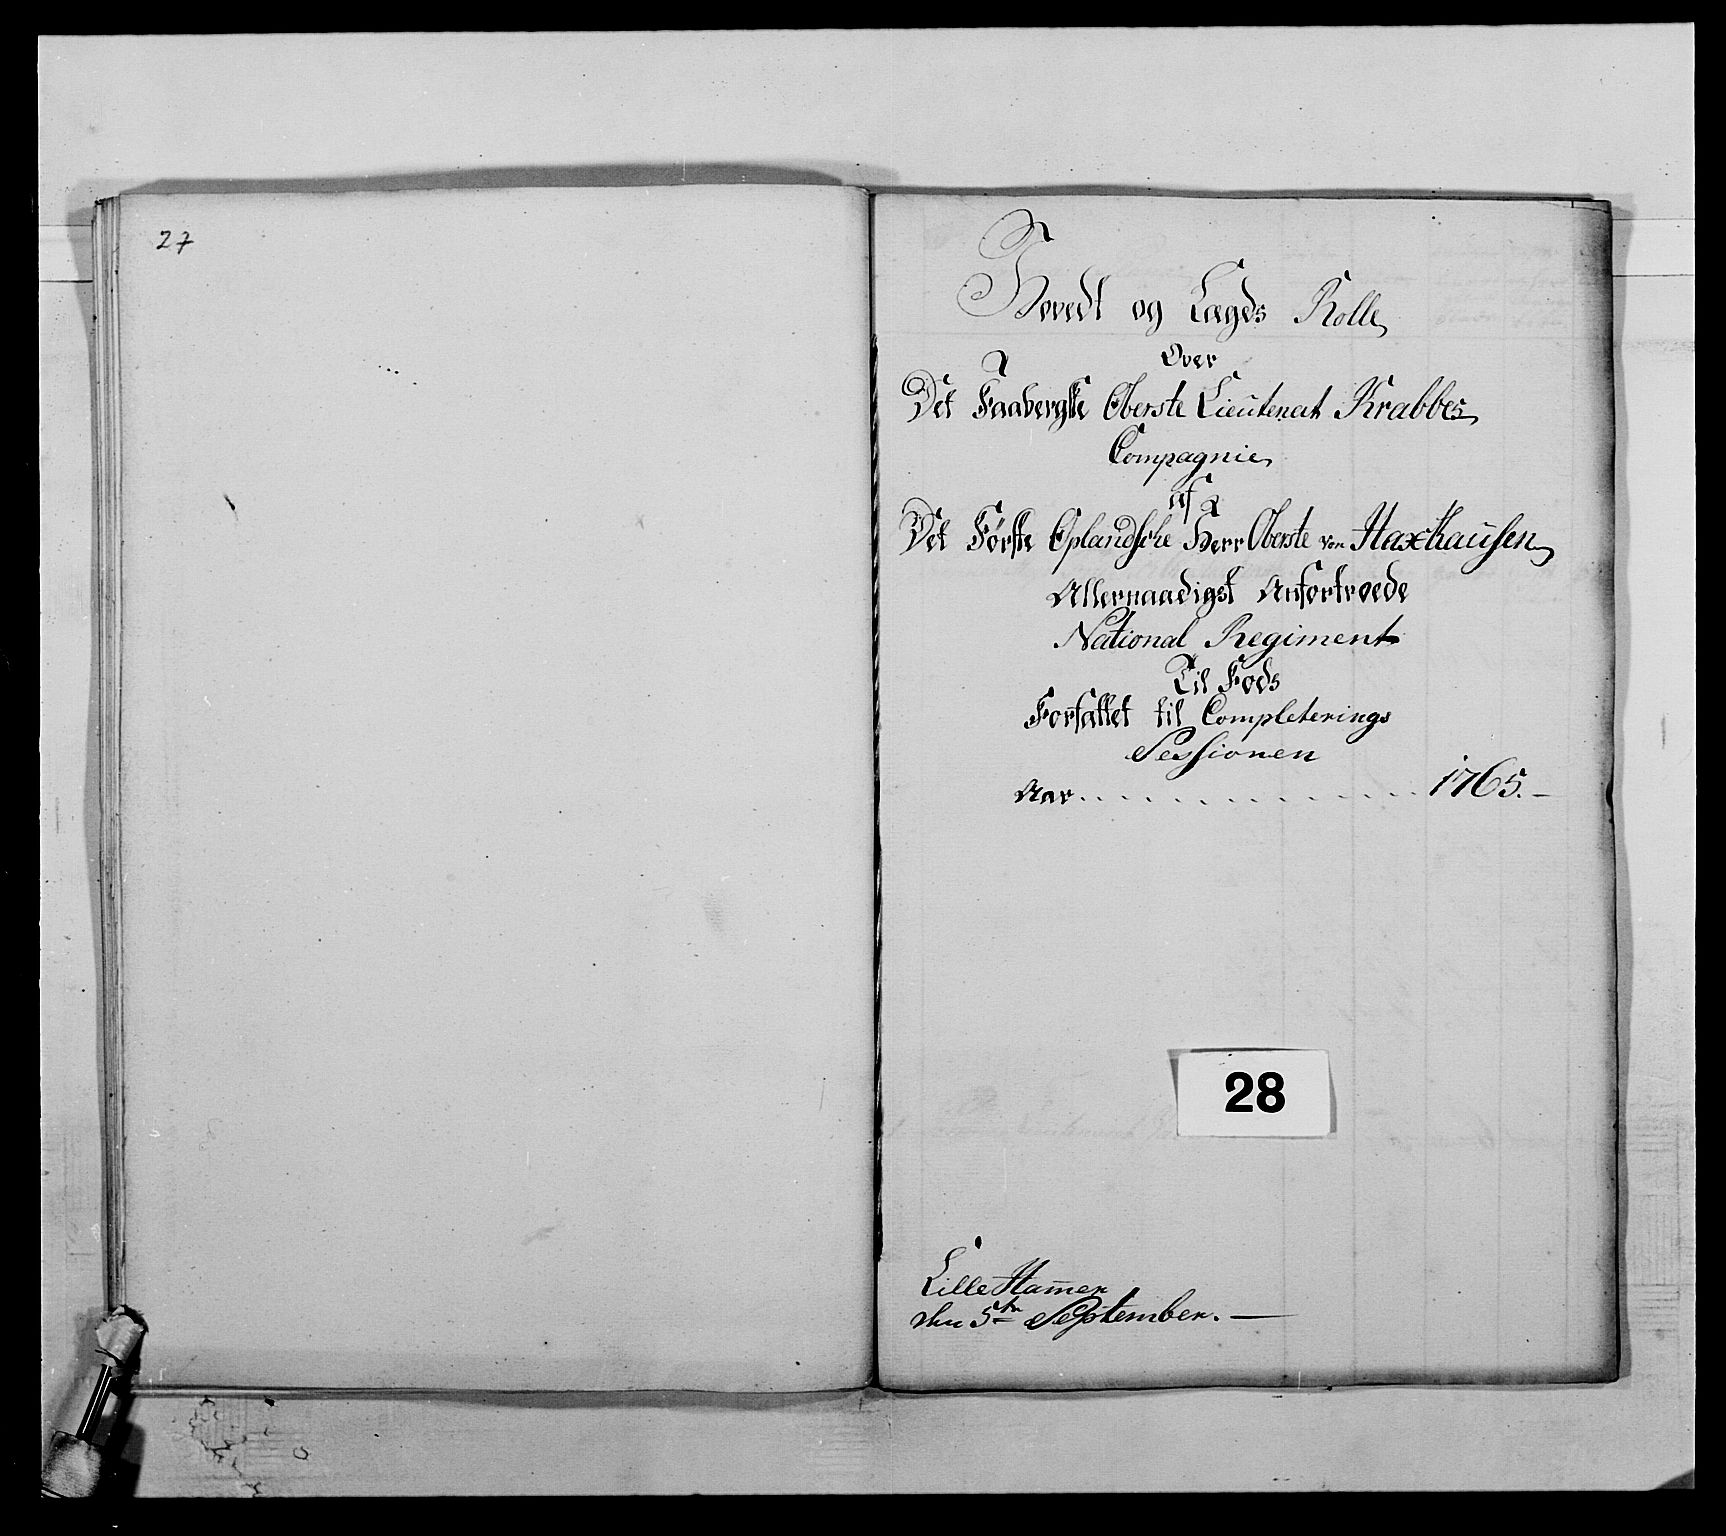 27
Hovedt og Lægds Rolle
Over
Det Faabergske Oberste Lieutenant Krabbes
Compagnie
af
Det Første Oplandske Herr Oberste von Haxthausen
Allernaadigst Anfortroede
National Regiment
Til Fods
Forfattet til Completerings
Sessionen
Aar . . . . . . . . . . . . . . . 1765. –
28
Lille Ham̄er
den 5te September. —